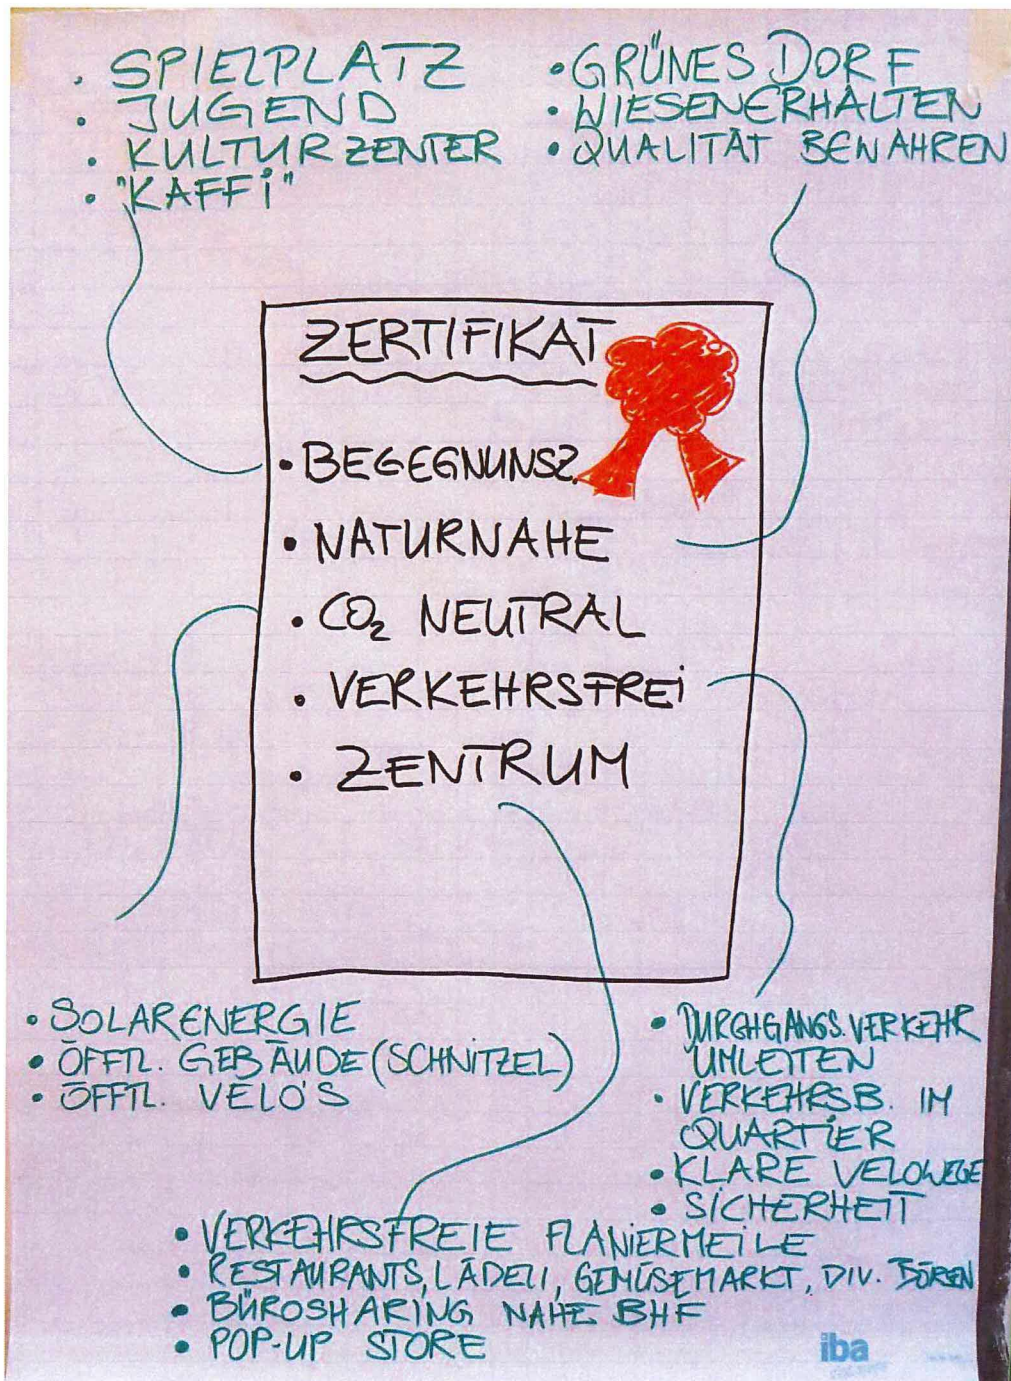 • SPIELPLATZ
• JUGEND
• KULTURZENTER
• "KAFFI"
• GRÜNES DORF
• WIESEN ERHALTEN
• QUALITÄT BEWAHREN
ZERTIFIKAT
• BEGEGNUNSZ.
• NATURNAHE
• CO₂ NEUTRAL
• VERKEHRSFREI
• ZENTRUM
• SOLARENERGIE
• ÖFFTL. GEBÄUDE (SCHNITZEL)
• ÖFFTL. VELO'S
• DURCHGANGS.VERKEHR
UMLEITEN
• VERKEHRSB. IM
QUARTIER
• KLARE VELOWEGE
• SICHERHEIT
• VERKEHRSFREIE FLANIERMEILE
• RESTAURANTS, LÄDELI, GEMÜSEMARKT, DIV. BÖRSEN
• BÜROSHARING NAHE BHF
• POP-UP STORE
iba